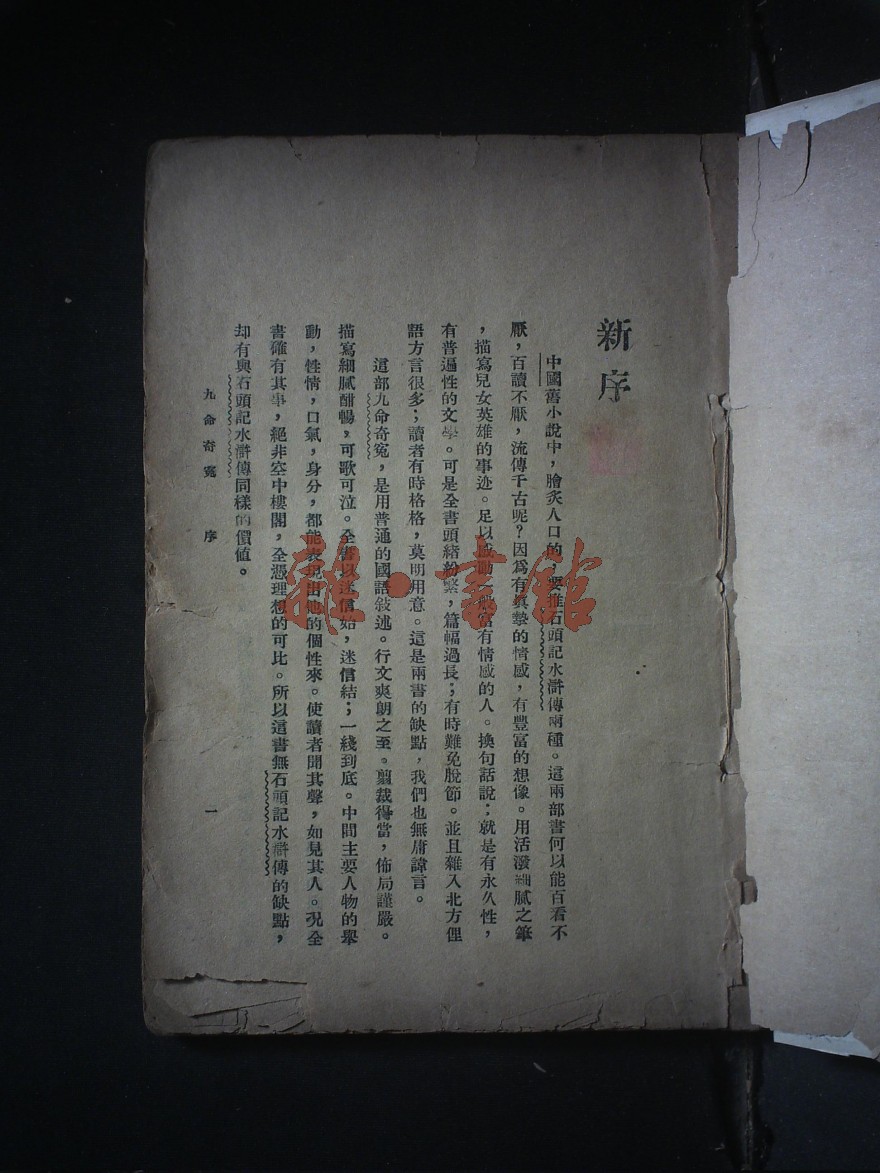 新序
中國舊小說中，膾炙人口的，要推石頭記水滸傳兩種。這兩部書何以能百看不
厭，百讀不厭，流傳千古呢？因爲有眞摯的情感，有豐富的想像。用活潑細膩之筆
，描寫兒女英雄的事迹。足以感動一般富有情感的人。換句話說；就是有永久性，
有普遍性的文學。可是全書頭緒紛繁，篇幅過長；有時難免脫節。並且雜入北方俚
語方言很多；讀者有時格格，莫明用意。這是兩書的缺點，我們也無庸諱言。
這部九命奇寃，是用普通的國語敍述。行文爽朗之至。剪裁得當，佈局謹嚴。
描寫細膩酣暢，可歌可泣。全書以迷信始，迷信結；一綫到底。中間主要人物的舉
動，性情，口氣，身分，都能表現出他的個性來。使讀者聞其聲，如見其人。况全
書確有其事，絕非空中樓閣，全憑理想的可比。所以這書無石頭記水滸傳的缺點，
却有與石頭記水滸傳同樣的價值。
九命奇寃 序 一
雜·書館